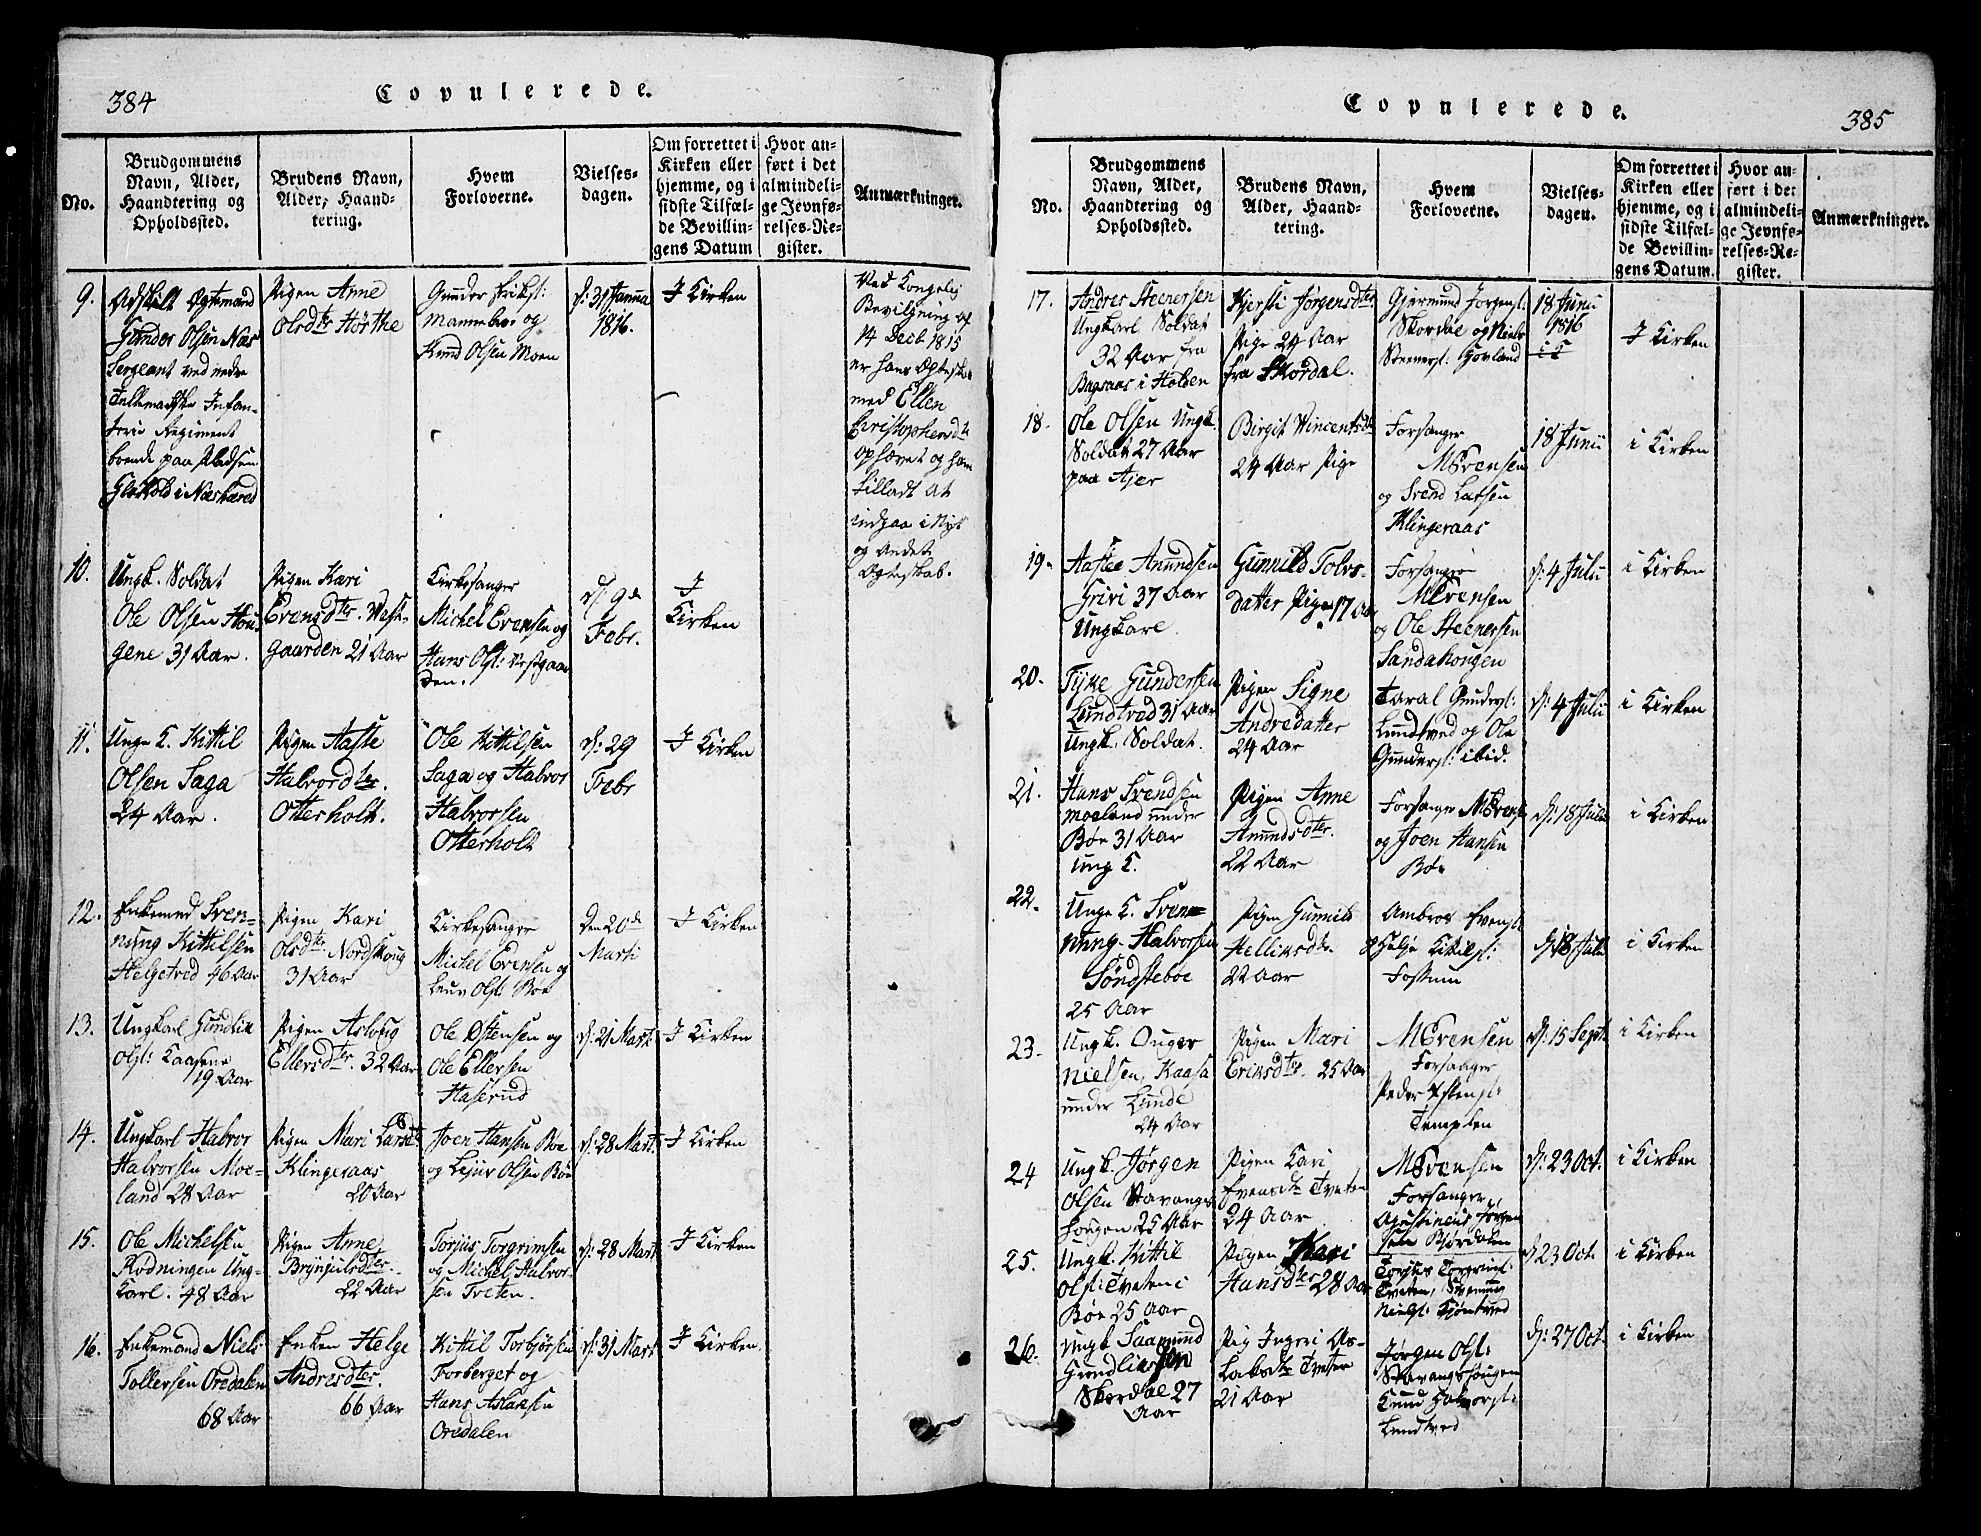 384
Copulerede.
No.
Brudgommens
Navn, Alder,
Haandtering og
Opholdssted.
Brudens Navn,
Alder, Haand-
tering.
Hvem
Forloverne.
Vielses-
dagen.
Om forrettet i
Kirken eller
hjemme, og i
sidste Tilfæl-
de Bevillin-
gens Datum
Hvor an-
ført i det
almindeli-
ge Jevnfø-
relses-Re-
gister.
Anmærkninger.
9.
Adskilt Ægtemand
Gunder Olsen Næs
Sergeant ved nedre
Tellemarkske Infan-
terie Regiment
boende paa Pladsen
i Næsherred
Pigen Anne
Olsdter Hørthe
Gunder Eriks:
Mannebro og
Knud Olsen Moen
d: 31 Janua
1816.
I Kirken
Ved Kongelig
Bevilgning af
14 Decb 1815
er hans Ægtesk
med Ellen
Christophersdtr
ophævet og ham
tilladt at
indgaa i Nyt
og andet
Ægteskab.
10.
Ungk. Soldat
Ole Olsen Hou-
gene 31 Aar.
Pigen Kari
Evensdter. Vest-
gaarden 21 Aar
Kirkesanger
Michel Evensen og
Hans Ols: Vestgaar
den.
d: 9de
Febr.
I
Kirken
11.
Unge K. Kittil
Olsen Saga
24 Aar.
Pigen Aaste
Halvordter.
Otterholt.
Ole Kittilsen
Saga og Halvor
Halvorsen
Otterholt
d: 29
Febr
I Kirken
12.
Enkemnd Sven-
nung Kittilsen
Helgetved 46 Aar
Pigen Kari
Olsdtr. Nordskoug
31 Aar
Kirkesanger
Michel Evensen og
Leuv Ols: Bøe
Den 20de
Marti
I Kirken
13.
Ungkarl Gundlik
Ols: Kaasene
19 Aar
Pigen Asloug
Ellersdter. 32 Aar
Ole Østensen og
Ole Ellersen
Haserud
d: 21 Mart.
I Kirken
14.
Ungkarl Halvor
Halvorsen Moe-
land 28 Aar
Pigen Mari Larsdt
Klingeraas
20 Aar
Joen Hansen Boe
og Lejuv Olsen Bøe
d: 28 Mart.
I Kirken
15.
Ole Michelsen
Rodningen Ung-
Karl. 48 Aar
Pigen Anne
Brynjulsdter.
22 Aar
Torjus Torgrimsen
og Michel Halvor-
sen Tveten.
d: 28 Mart
I Kirken
16.
Enkemand Niels
Tollersen Oredalen
68 Aar
Enken Helge
Andresdter.
66 Aar
Kittil Torbjørsen
Forberget og
Hans Aslaksen
Oredalen
d: 31 Mart
I Kirken
385
Copulerede.
No.
Brudgommens
Navn, Alder,
Haandtering og
Opholdssted.
Brudens Navn,
Alder, Haand-
tering.
Hvem
Forloverne.
Vielses-
dagen.
Om forrettet i
Kirken eller
hjemme, og i
sidste Tilfæl-
de Bevillin-
gens Datum.
Hvor an-
ført i det
almindeli-
ge Jevnfø-
relses-Re-
gister.
Anmærkninger.
17.
Andres Steenersen
Ungkarl Soldat
32 Aar fra
Bagaas i Holden
Kjersti Jørgensdter
Pige 24 Aar
fra Skordal.
Gjermund Jorgens:
Skordal og Niels
Steeners: Govland
18 Junii
1816
I Kirken
18.
Ole Olsen Ungk.
Soldat 27 Aar
paa Ajer
Birgit Vincentsdt
24 Aar Pige
Forsanger
M Evensen
og Svend Larsen
Klingeraas
18 Junii
i Kirken
19.
Aaslee Anundsen
Grivi 37 Aar
Ungkarl.
Gunnild Tolvs-
datter Pige 17 Aar
Forsanger
M Evensen
og Ole Steenersen
Sandahougen
d: 4 Julii
i Kirken
20.
Tjke Gundersen
Lundtved 31 Aar
Ungk. Soldat.
Pigen Signe
Andredatter
24 Aar
Taral Gunders:
Lundtved og Ole
Gunders: ibid.
d: 4 Julii
i Kirken
21.
Hans Svendsen
Moeland under
Bøe 31 Aar
Ung K.
Pigen Anne
Anundsdter.
22 Aar
Forsanger M Evens
og Joen Hansen
Bøe
d: 18 Julii
i Kirken
22.
Unge K. Sven-
nung Halvorsen
Søndsteboe
25 Aar
Pigen Gunnild
Helliksdtr
22 Aar
Ambros Evens:
Helje Kittils:
Fossum
d: 18 Julii
i Kirken
23.
Ungk. Ouger
Nielsen, Kaasa
under Lunde
24 Aar
Pigen Mari
Eriksdter. 25 Aar
M Evensen
Forsanger
Peder Østens:
Templen
d: 15 Sept.
i Kirken
24
Ungk. Jørgen
Olsen Stavanger
hougen 25 Aar
Pigen Kari
Evensdtr Tveten
24 Aar
M Evensen
Forsanger
Agustineus Jørgen
sen Bjordalen
d: 23 Oct.
i Kirken
25.
Ungk. Kittil
Ols: Tveten i
Bøe 25 Aar
Pigen Kari
Hansdter 28 Aar
Torjus Torgrims:
Tveten, Svennung
Niels: Tjøntved
d: 23 Oct.
i Kirken
26.
Ungk. Saamund
Gundliksen
Skordal 27
Aar
Pig Ingri As-
laksdtr Tveten
21 Aar
Jørgen Ols:
Stavangshougen
Knud Halvors:
Lundtved
d: 27 Oct.
i Kirken